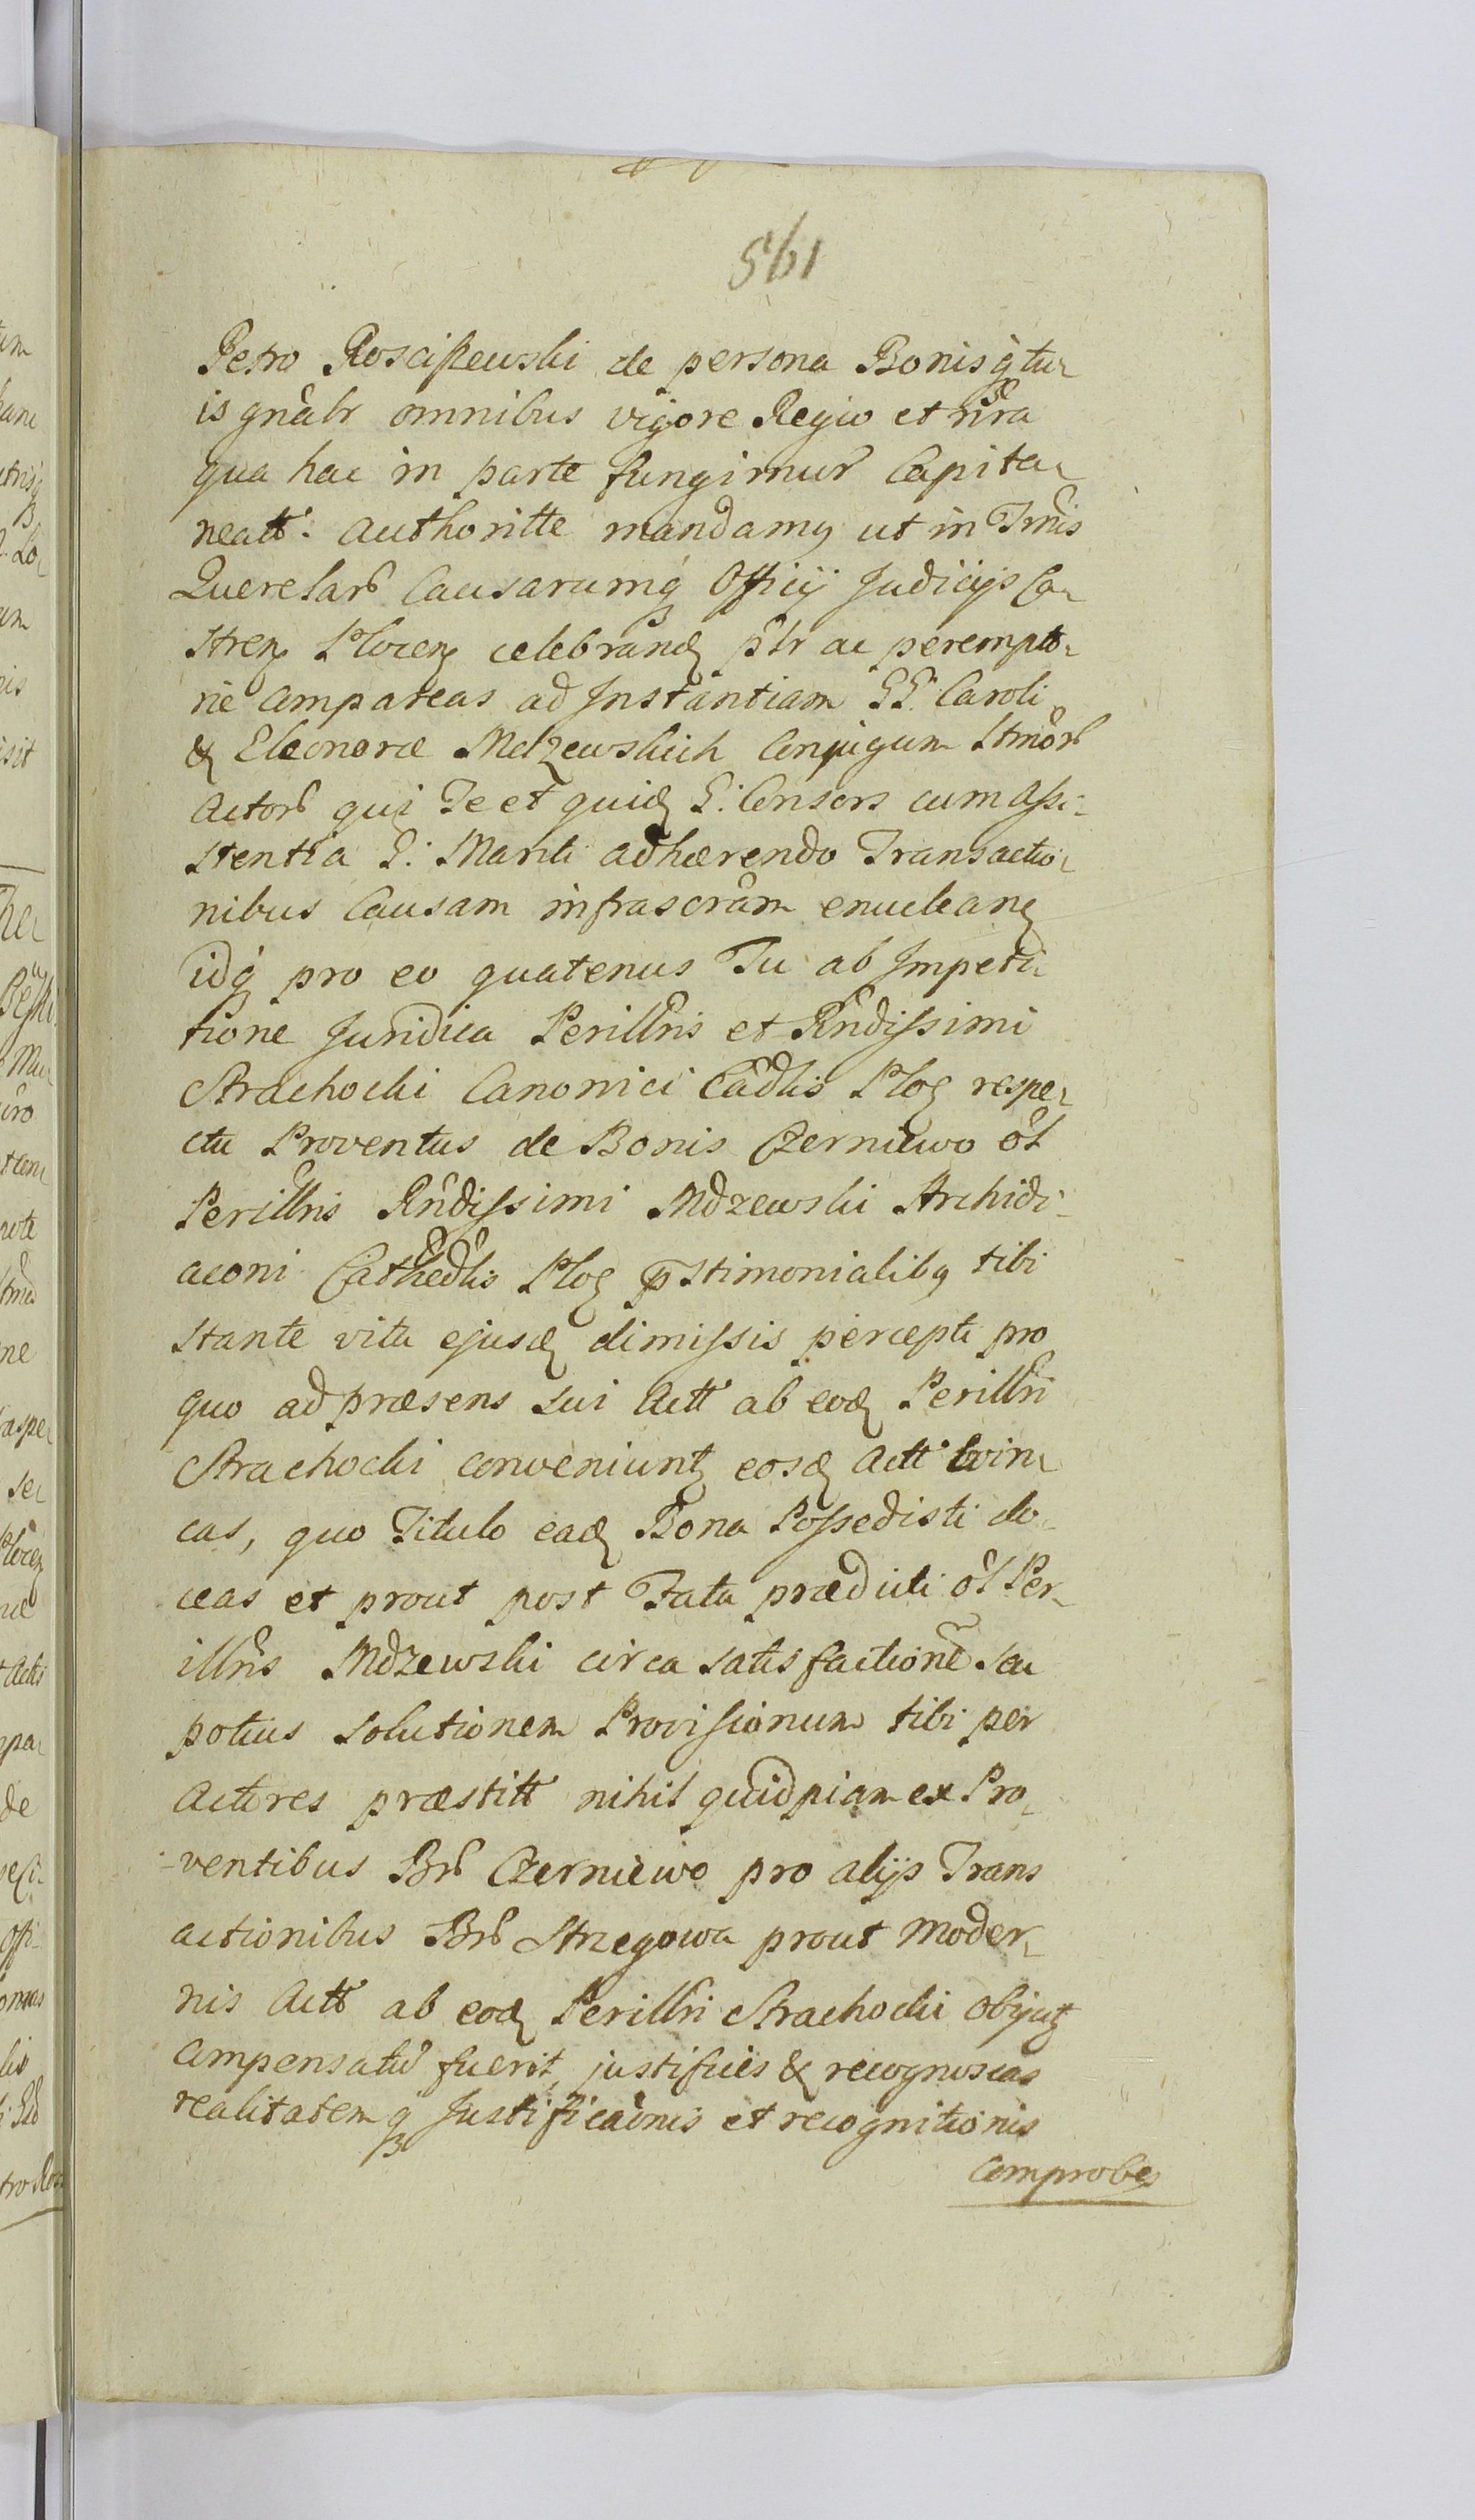 561
Petro Rosciszewski de persona Bonisq̃ tu-
is gnãlr omnibus vigore Regio et nr̃a
qua hac in parte fungimur Capita-
neatt: Authoritte mandamq ut in Tm̃is
Querelarũ Causarumq̃ Officij Judicijs Ca-
stren Plocen celebrand pr̃lr ac perempto-
rie Compareas ad Instantiam GG. Caroli
& Eleonoræ Mdzewskich Conjugum Itm̃orũ
Actorũ qui Te et quid G: Consors cum Assi-
stentia G: Mariti adhærendo Transactio-
nibus Causam infrascrãm enuclean
idq̃ pro eo quatenus Tu ab Impeti-
tione Juridica Perillr̃is et Rñdissimi
Strachocki Canonici Cãdlis Ploc respe-
ctu Proventus de Bonis Czerniewo õl
Perillr̃is Rñdissimi Mdzewski Archidi-
aconi Cathedlis Ploc p̃stimonialibq tibi
stante vita ejusd dimissis percepti pro
quo ad præsens sui Actt ab eod Perillr̃i
Strachocki conveniunt eosd Actt evin-
cas, quo Titulo ead Bona Possedisti do-
ceas et prout post Fata prædicti õl Per-
illr̃is Mdzewski circa satisfactionẽ seu
potius solutionem Provisionum tibi per
Actores præstitt nihil quidpiam ex Pro-
-ventibus Brũ Czerniewo pro alijs Trans
actionibus Brũ Strzegowa prout Moder-
nis Actt ab eod Perillr̃i Strachocki Objicit
Compensatũ fuerit, justifices & recognoscas
realitatemq̃ Justificãonis et recognitionis
Comprobes